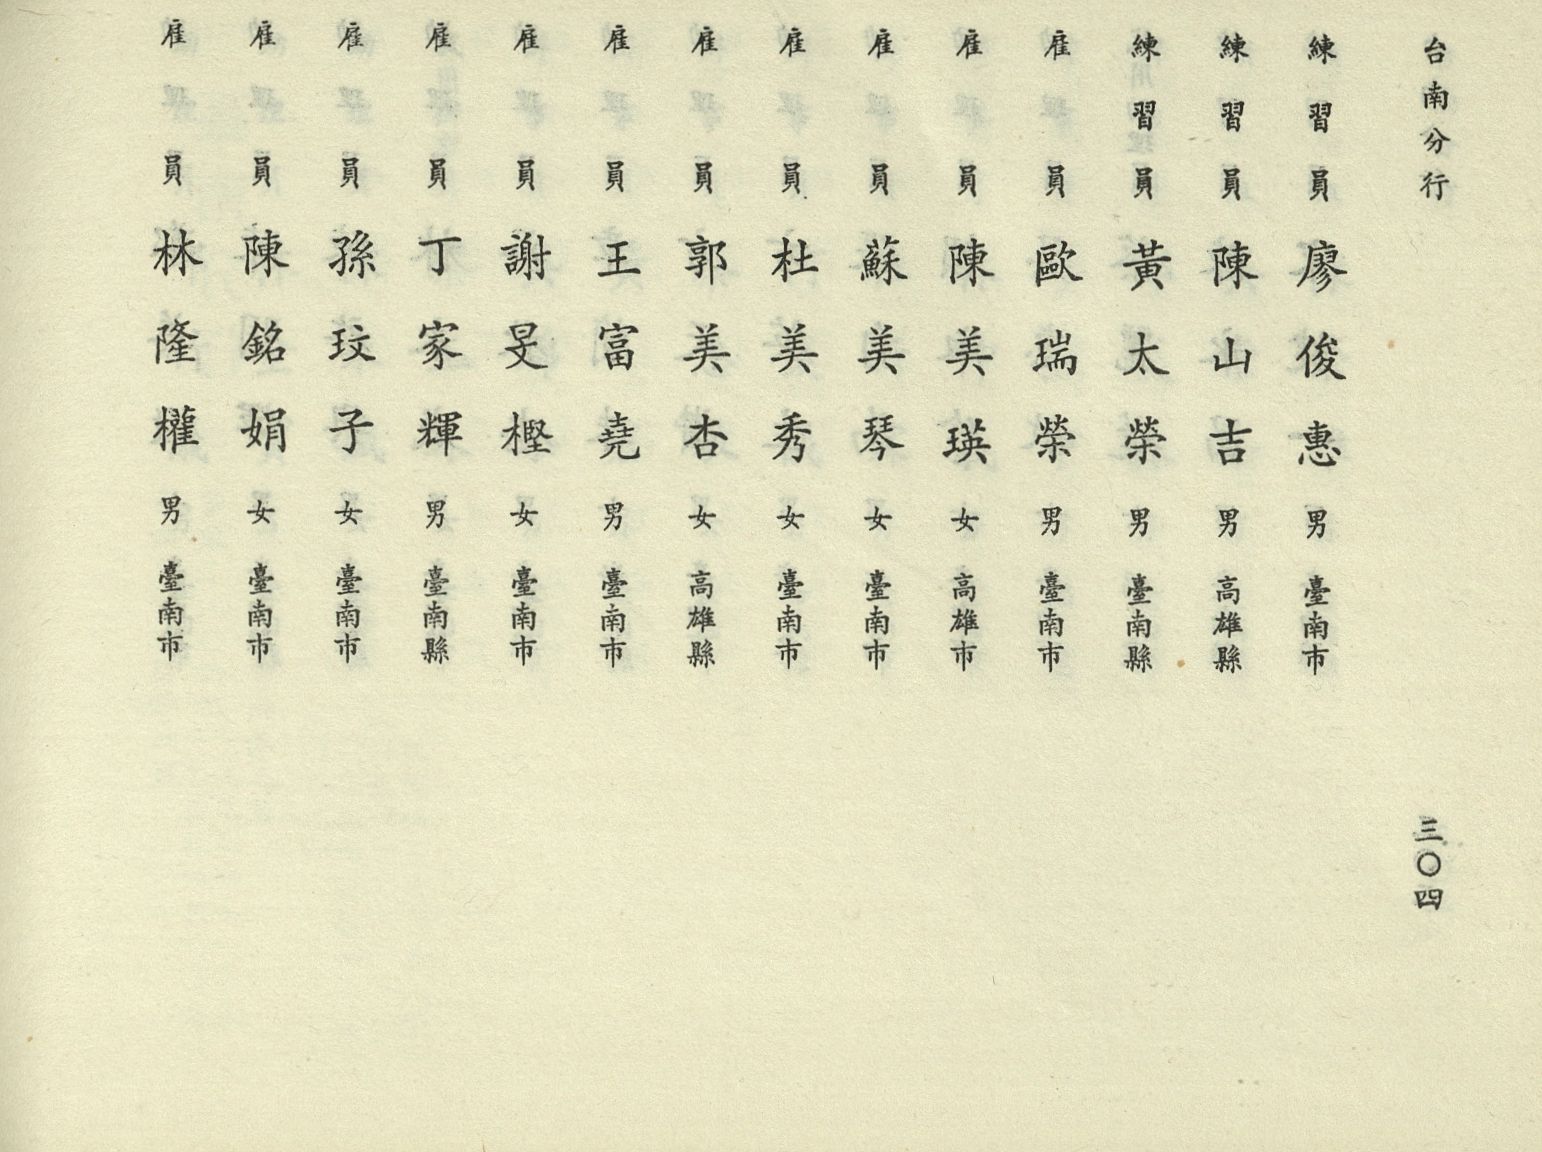 台南分行
三〇四
練習員 廖俊惠 男 臺南市
練習員 陳山吉 男 高雄縣
練習員 黃太榮 男 臺南縣
雇員 歐瑞榮 男 臺南市
雇員 陳美瑛 女 高雄市
雇員 蘇美琴 女 臺南市
雇員 杜美秀 女 臺南市
雇員 郭美杏 女 高雄縣
雇員 王富堯 男 臺南市
雇員 謝旻樫 女 臺南市
雇員 丁家輝 男 臺南縣
雇員 孫玟子 女 臺南市
雇員 陳銘娟 女 臺南市
雇員 林隆權 男 臺南市